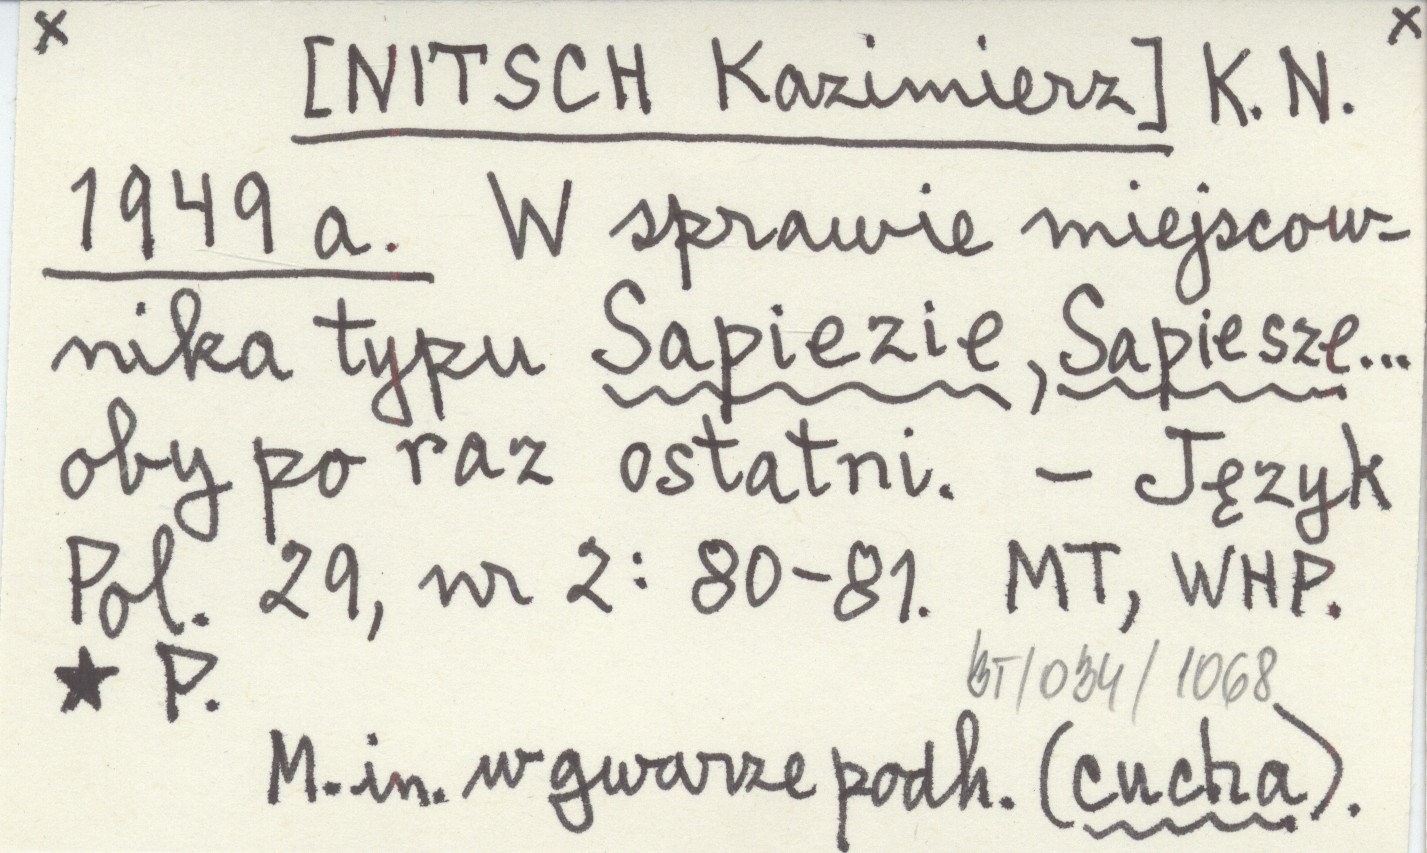 x x
[NITSCH Kazimierz] K.N.
1949a. W sprawie miejscow-
nika typu Sapiezie, Sapiesze...
oby po raz ostatni. – Język
Pol. 29, nr 2: 80-81. MT, WHP.
★ P. BT/034/1068
M.in. w gwarze podh. (cucha).